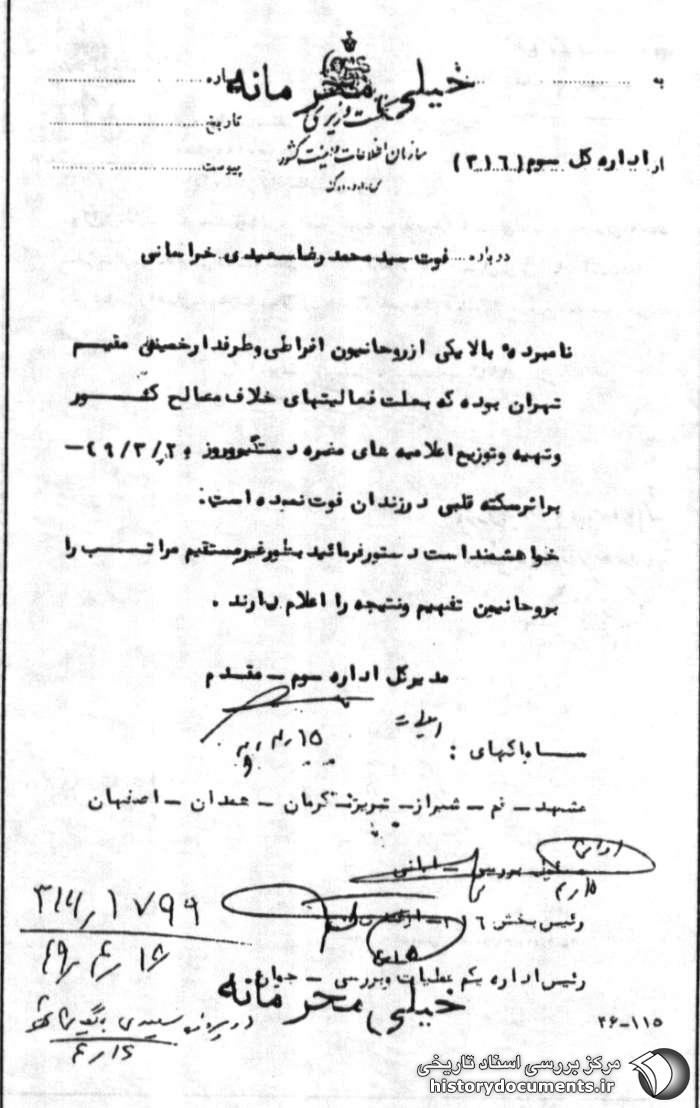 خیلی محرمانه
به
شماره
نخست وزیری
تاریخ
سازمان اطلاعات و امنیت کشور
از اداره کل سوم (۳۱۶)
پیوست
س.ا.و.ا.ک
درباره فوت سید محمد رضا سعیدی خراسانی
نامبرده بالا یکی از روحانیون افراطی و طرفدار خمینی مقیم
تهران بوده که بعلت فعالیتهای خلاف مصالح کشور
وتهیه وتوزیع اعلامیه های مضره دستگیر و روز
براثر سکته قلبی در زندان فوت نموده است.
خواهشمند است دستور فرمائید بطور غیر مستقیم مراتب را
بروحانیون تفهیم ونتیجه را اعلام دارند.
مدیر کل اداره سوم - مقدم
ساواکهای :
مشهد - قم - شیراز - تبریز - کرمان - همدان - اصفهان
بررسی
رئیس بخش ۳۱۶
۳۱۶/۱۷۹۹
۴۹/۴/۱۶
رئیس اداره یکم عملیات وبررسی - جوان
خیلی محرمانه
در پرونده سعیدی بایگانی شود
۱۶/۴
۲۶-۱۱۵
مرکز بررسی اسناد تاریخی
historydocuments.ir